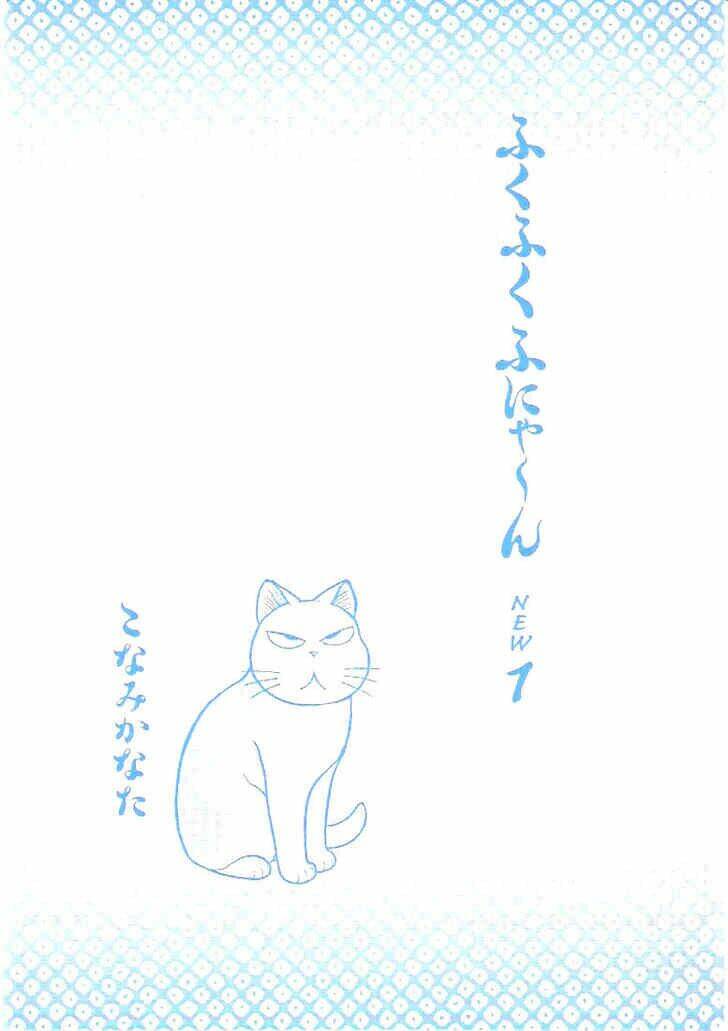 ふくふくふにゃ～ん
NEW
1
こなみかなた